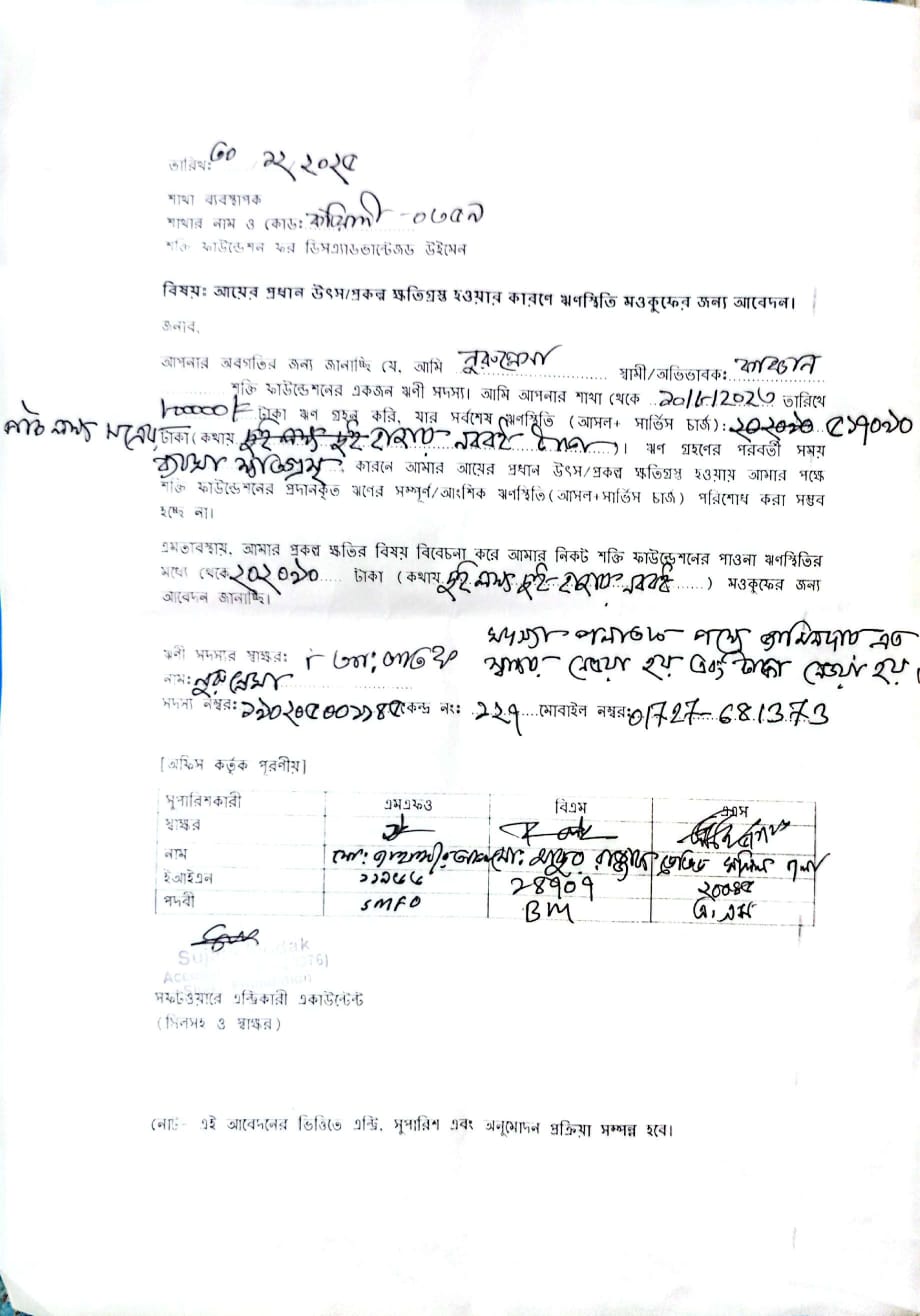 তারিখ: ৩০ ১২/২০২৫
শাখা ব্যবস্থাপক
শাখার নাম ও কোড: -০৩৫৯
শক্তি ফাউন্ডেশন ফর ডিসএ্যাডভান্টেজড উইমেন
বিষয়: আয়ের প্রধান উৎস/প্রকল্প ক্ষতিগ্রস্ত হওয়ার কারণে ঋণস্থিতি মওকুফের জন্য আবেদন।
জনাব,
আপনার অবগতির জন্য জানাচ্ছি যে, আমি নুরুন্নেসা স্বামী/অভিভাবক:
শক্তি ফাউন্ডেশনের একজন ঋণী সদস্য। আমি আপনার শাখা থেকে তারিখে
টাকা ঋণ গ্রহণ করি, যার সর্বশেষ ঋণস্থিতি (আসল+ সার্ভিস চার্জ): ২০২০৯০ ৫১৭০৯০
টাকা (কথায় দুই লক্ষ দুই হাজার নব্বই টাকা)। ঋণ গ্রহণের পরবর্তী সময়
ব্যবসা ক্ষতিগ্রস্ত কারনে আমার আয়ের প্রধান উৎস/প্রকল্প ক্ষতিগ্রস্ত হওয়ায় আমার পক্ষে
শক্তি ফাউন্ডেশনের প্রদানকৃত ঋণের সম্পূর্ণ/আংশিক ঋণস্থিতি(আসল+সার্ভিস চার্জ) পরিশোধ করা সম্ভব
হচ্ছে না।
এমতাবস্থায়, আমার প্রকল্প ক্ষতির বিষয় বিবেচনা করে আমার নিকট শক্তি ফাউন্ডেশনের পাওনা ঋণস্থিতির
মধ্যে থেকে ২০২০৯০ টাকা (কথায় দুই লক্ষ দুই হাজার নব্বই) মওকুফের জন্য
আবেদন জানাচ্ছি।
সদস্যা পলাতক পক্ষে জামিনদার এর
ঋণী সদস্যর স্বাক্ষর: স্বাক্ষর নেওয়া হয় এবং টাকা নেওয়া হয়।
নাম: নুরুন্নেসা
সদস্য নম্বর: কেন্দ্র নং: ২২৭ মোবাইল নম্বর: 01727-681373
[অফিস কর্তৃক পূরণীয়]
সুপারিশকারী এমএফও বিএম এএস
স্বাক্ষর
নাম মো:
ইআইএন ২৪৭০৭ ২০০৪৫
পদবী SMFO BM এ.এস
সফটওয়ারে এন্ট্রিকারী একাউন্টেন্ট
(সিলসহ ও স্বাক্ষর)
নোট- এই আবেদনের ভিত্তিতে এন্ট্রি, সুপারিশ এবং অনুমোদন প্রক্রিয়া সম্পন্ন হবে।